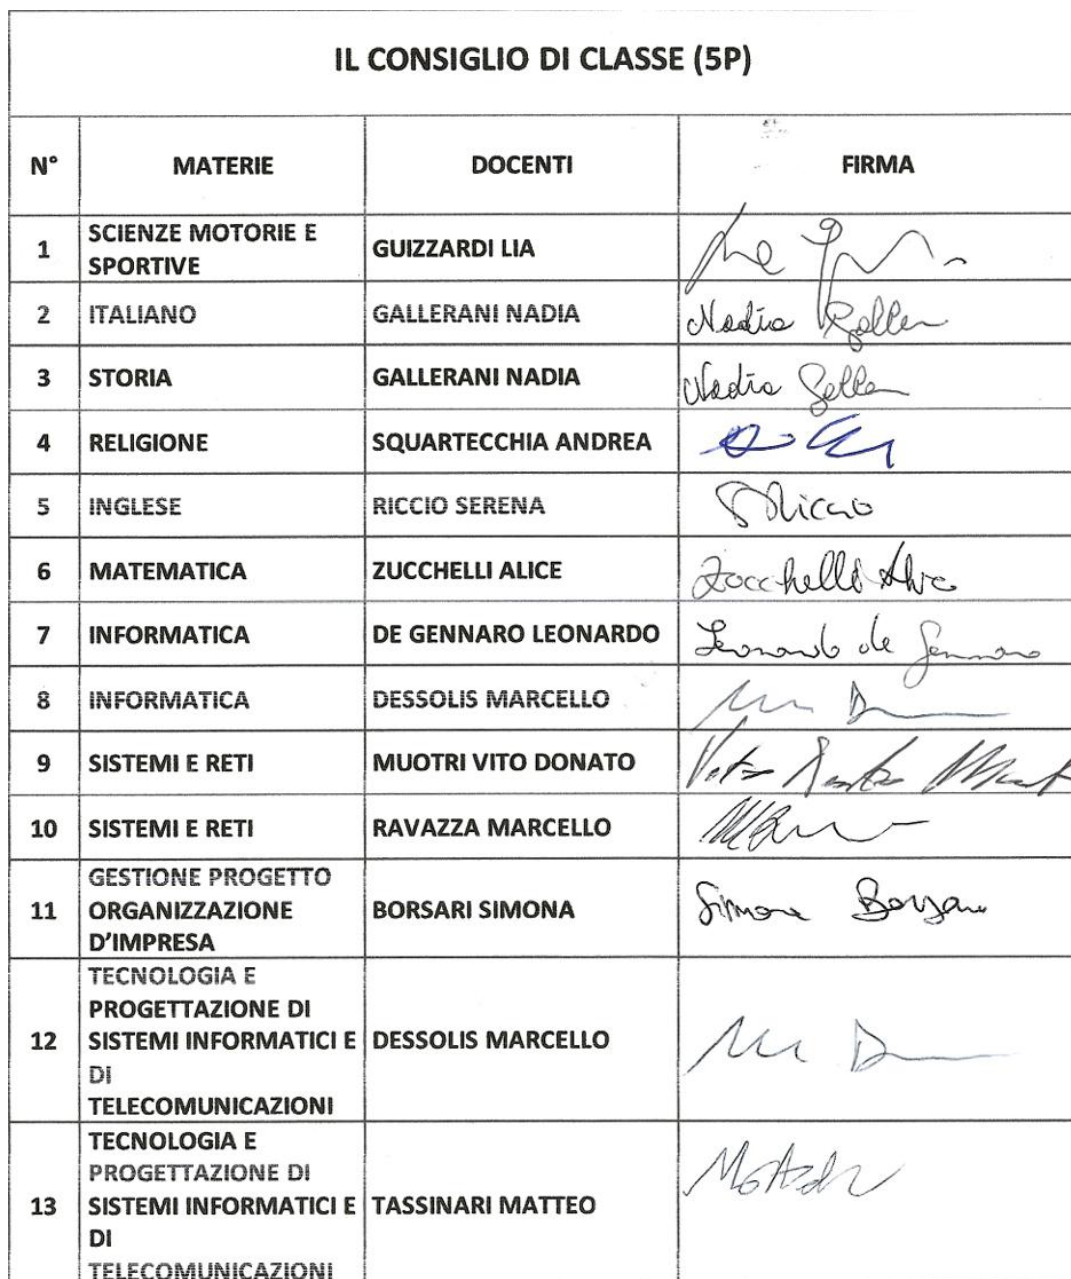 IL CONSIGLIO DI CLASSE (5P)
N° MATERIE DOCENTI FIRMA
1 SCIENZE MOTORIE E SPORTIVE GUIZZARDI LIA
2 ITALIANO GALLERANI NADIA Nadia Galler
3 STORIA GALLERANI NADIA Nadia Galler
4 RELIGIONE SQUARTECCHIA ANDREA
5 INGLESE RICCIO SERENA SRiccio
6 MATEMATICA ZUCCHELLI ALICE Zucchelli Alice
7 INFORMATICA DE GENNARO LEONARDO Leonardo de Gennaro
8 INFORMATICA DESSOLIS MARCELLO
9 SISTEMI E RETI MUOTRI VITO DONATO Vito Donato
10 SISTEMI E RETI RAVAZZA MARCELLO
11 GESTIONE PROGETTO
ORGANIZZAZIONE
D'IMPRESA
BORSARI SIMONA Simona Borsari
12 TECNOLOGIA E
PROGETTAZIONE DI
SISTEMI INFORMATICI E
DI
TELECOMUNICAZIONI
DESSOLIS MARCELLO
13 TECNOLOGIA E
PROGETTAZIONE DI
SISTEMI INFORMATICI E
DI
TELECOMUNICAZIONI
TASSINARI MATTEO